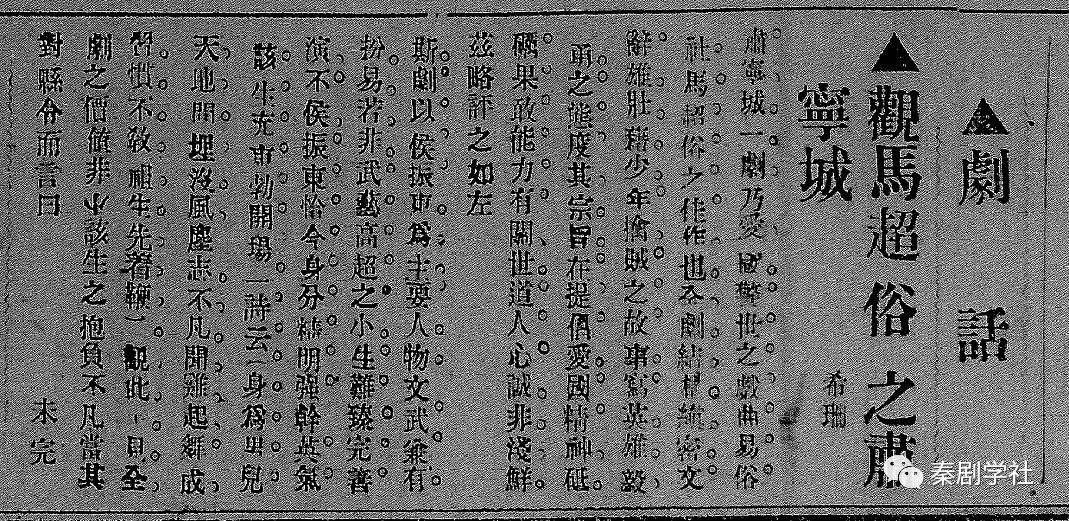 ▲劇話
▲觀馬超俗之肅
寧城
希瑞
肅寧城一劇乃愛國警世之戲曲易俗
社馬超俗之佳作也全劇結構縝密文
辭雄壯藉少年擒賊之故事寫英雄毅
勇之態度其宗旨在提倡愛國精神砥
礪果敢能力有關世道人心誠非淺鮮
茲略評之如左
斯劇以侯振東爲主要人物文武兼有
扮易若非武藝高超之小生難臻完善
演不侯振東恰合身分精明強幹英氣
該生充東勃開場一詩云(身爲男兒
天地間埋沒風塵志不凡聞雞起舞成
習慣不敎祖生先着鞭)觀此一見全
劇之價値非小該生之抱負不凡當其
對縣令而言曰
未完
秦剧学社